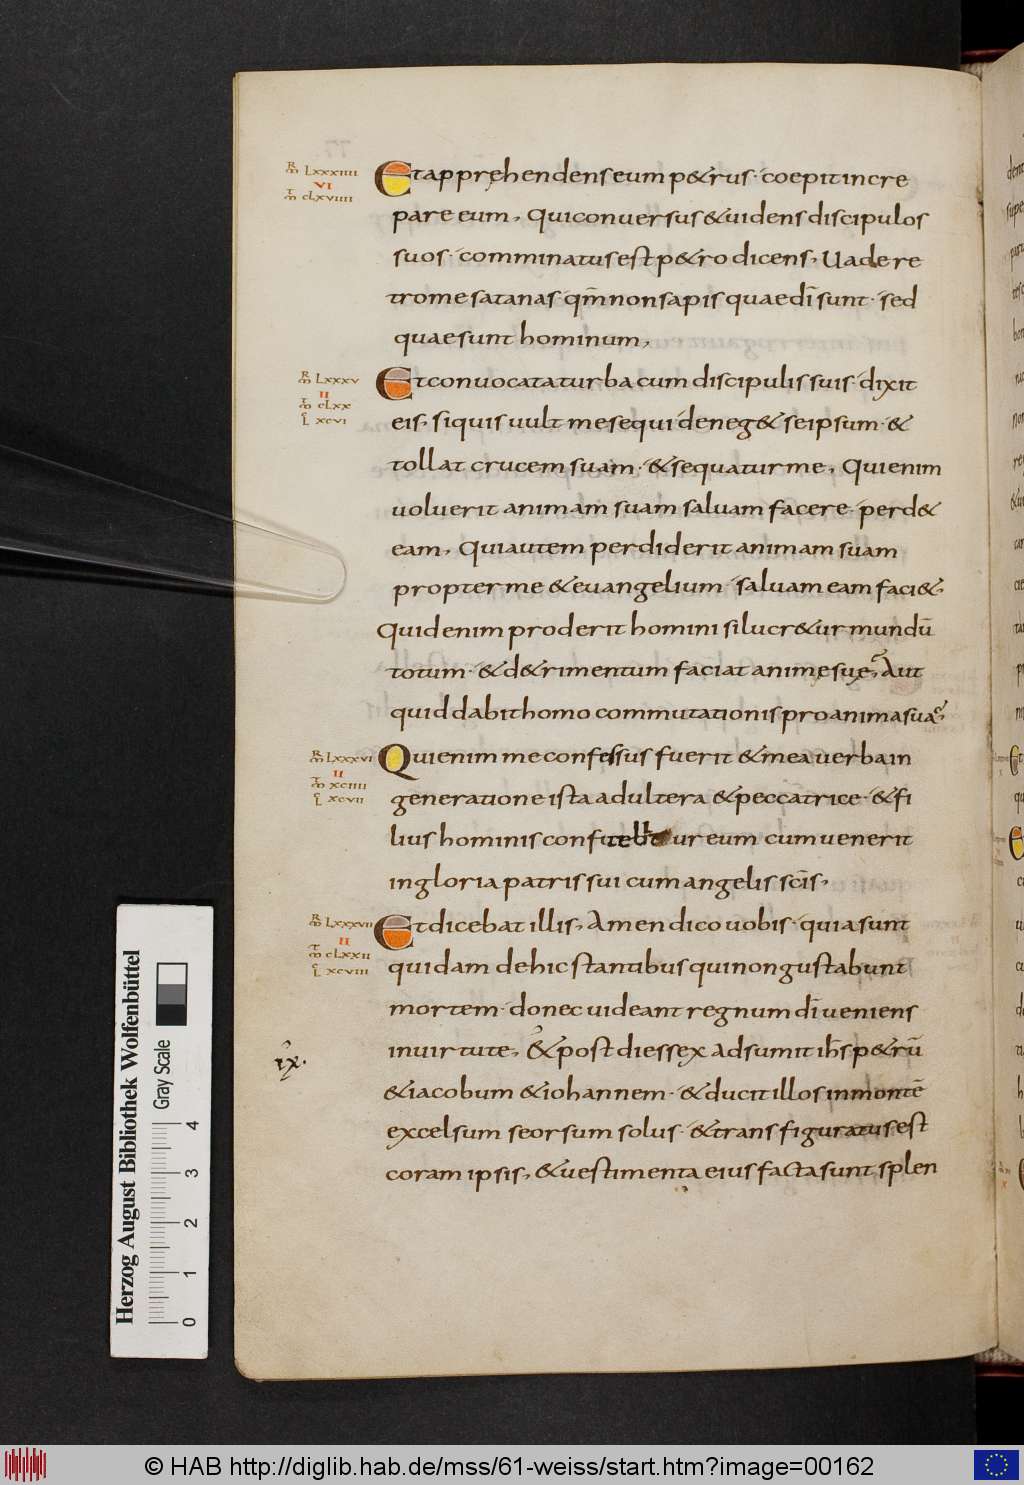 M͞R LXXXIIII
VI
M͞T CLXVIIII
Et apprehendens eum p&rus · coepit incre
pare eum, Qui conuersus & uidens discipulos
suos · comminatus est p&ro dicens, Uade re
tro me satanas · qm̄ non sapis quae dī sunt · sed
quae sunt hominum,
M͞R LXXXV
II
M͞T CLXX
L XCVI
Et conuocata turba cum discipulis suis · dixit
eis, si quis uult me sequi deneg& se ipsum · &
tollat crucem suam · & sequatur me, Qui enim
uoluerit animam suam saluam facere · perd&
eam, Qui autem perdiderit animam suam
propter me & euangelium · saluam eam faci&,
Quid enim proderit homini si lucr&ur mundū
totum · & d&rimentum faciat animę suę, Aut
quid dabit homo commutationis pro anima sua,
M͞R LXXXVI
II
M͞T XCIIII
L XCVII
Qui enim me confessus fuerit & mea uerba in
generatione ista adultera & peccatrice · & fi
lius hominis confitebitur eum cum uenerit
in gloria patris sui cum angelis scīs,
M͞R LXXXVII
II
M͞T CLXXII
L XCVIII
Et dicebat illis, Amen dico uobis · quia sunt
quidam de hic stantibus qui non gustabunt
mortem · donec uideant regnum dī ueniens
in uirtute, & post dies sex adsumit ih̄s p&rū
ıx.
& iacobum & iohannem · & ducit illos in montē
excelsum seorsum solus · & transfiguratus est
coram ipsis, & uestimenta eius facta sunt splen
Herzog August Bibliothek Wolfenbüttel
Gray Scale
0 1 2 3 4
© HAB http://diglib.hab.de/mss/61-weiss/start.htm?image=00162